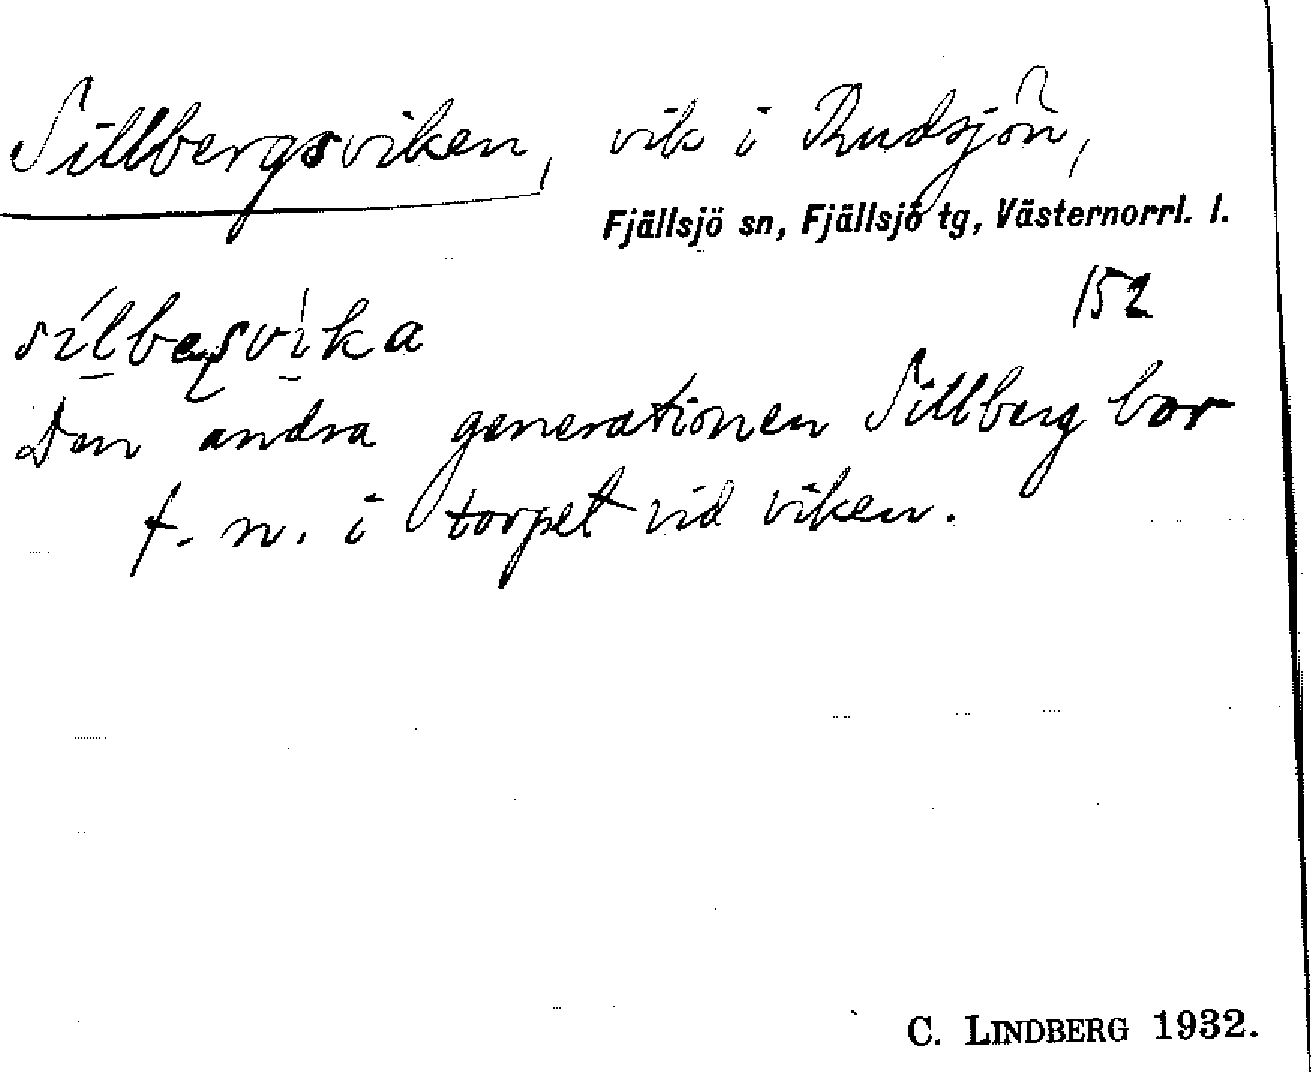 Sillbergsviken, vik i Rudsjön,
Fjällsjö sn, Fjällsjö tg, Västernorrl. l.
152
Den andra generationen Sillberg bor
f. n. i torpet vid viken.
C. LINDBERG 1932.